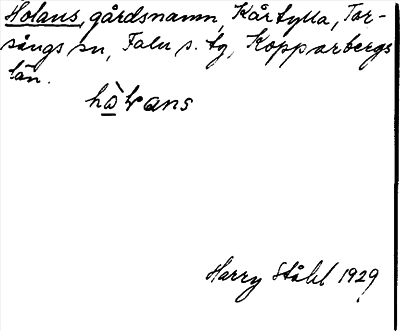 Holans, gårdsnamn, Kårtylla, Tor-
sångs sn, Falu s. tg, Kopparbergs
län.
Harry Ståhl 1929